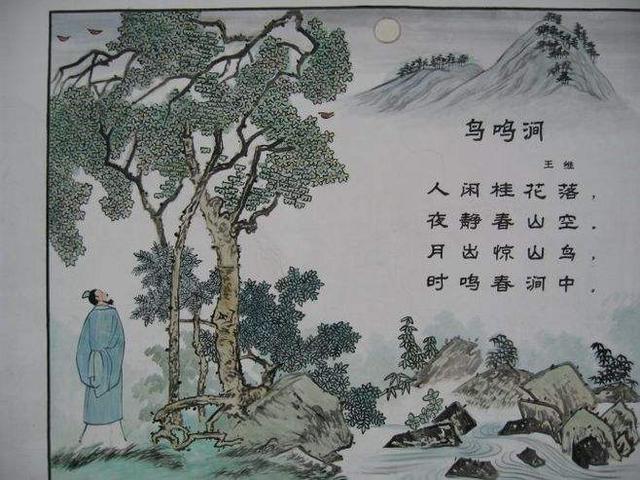 鸟鸣涧
王维
人闲桂花落，
夜静春山空．
月出惊山鸟，
时鸣春涧中．